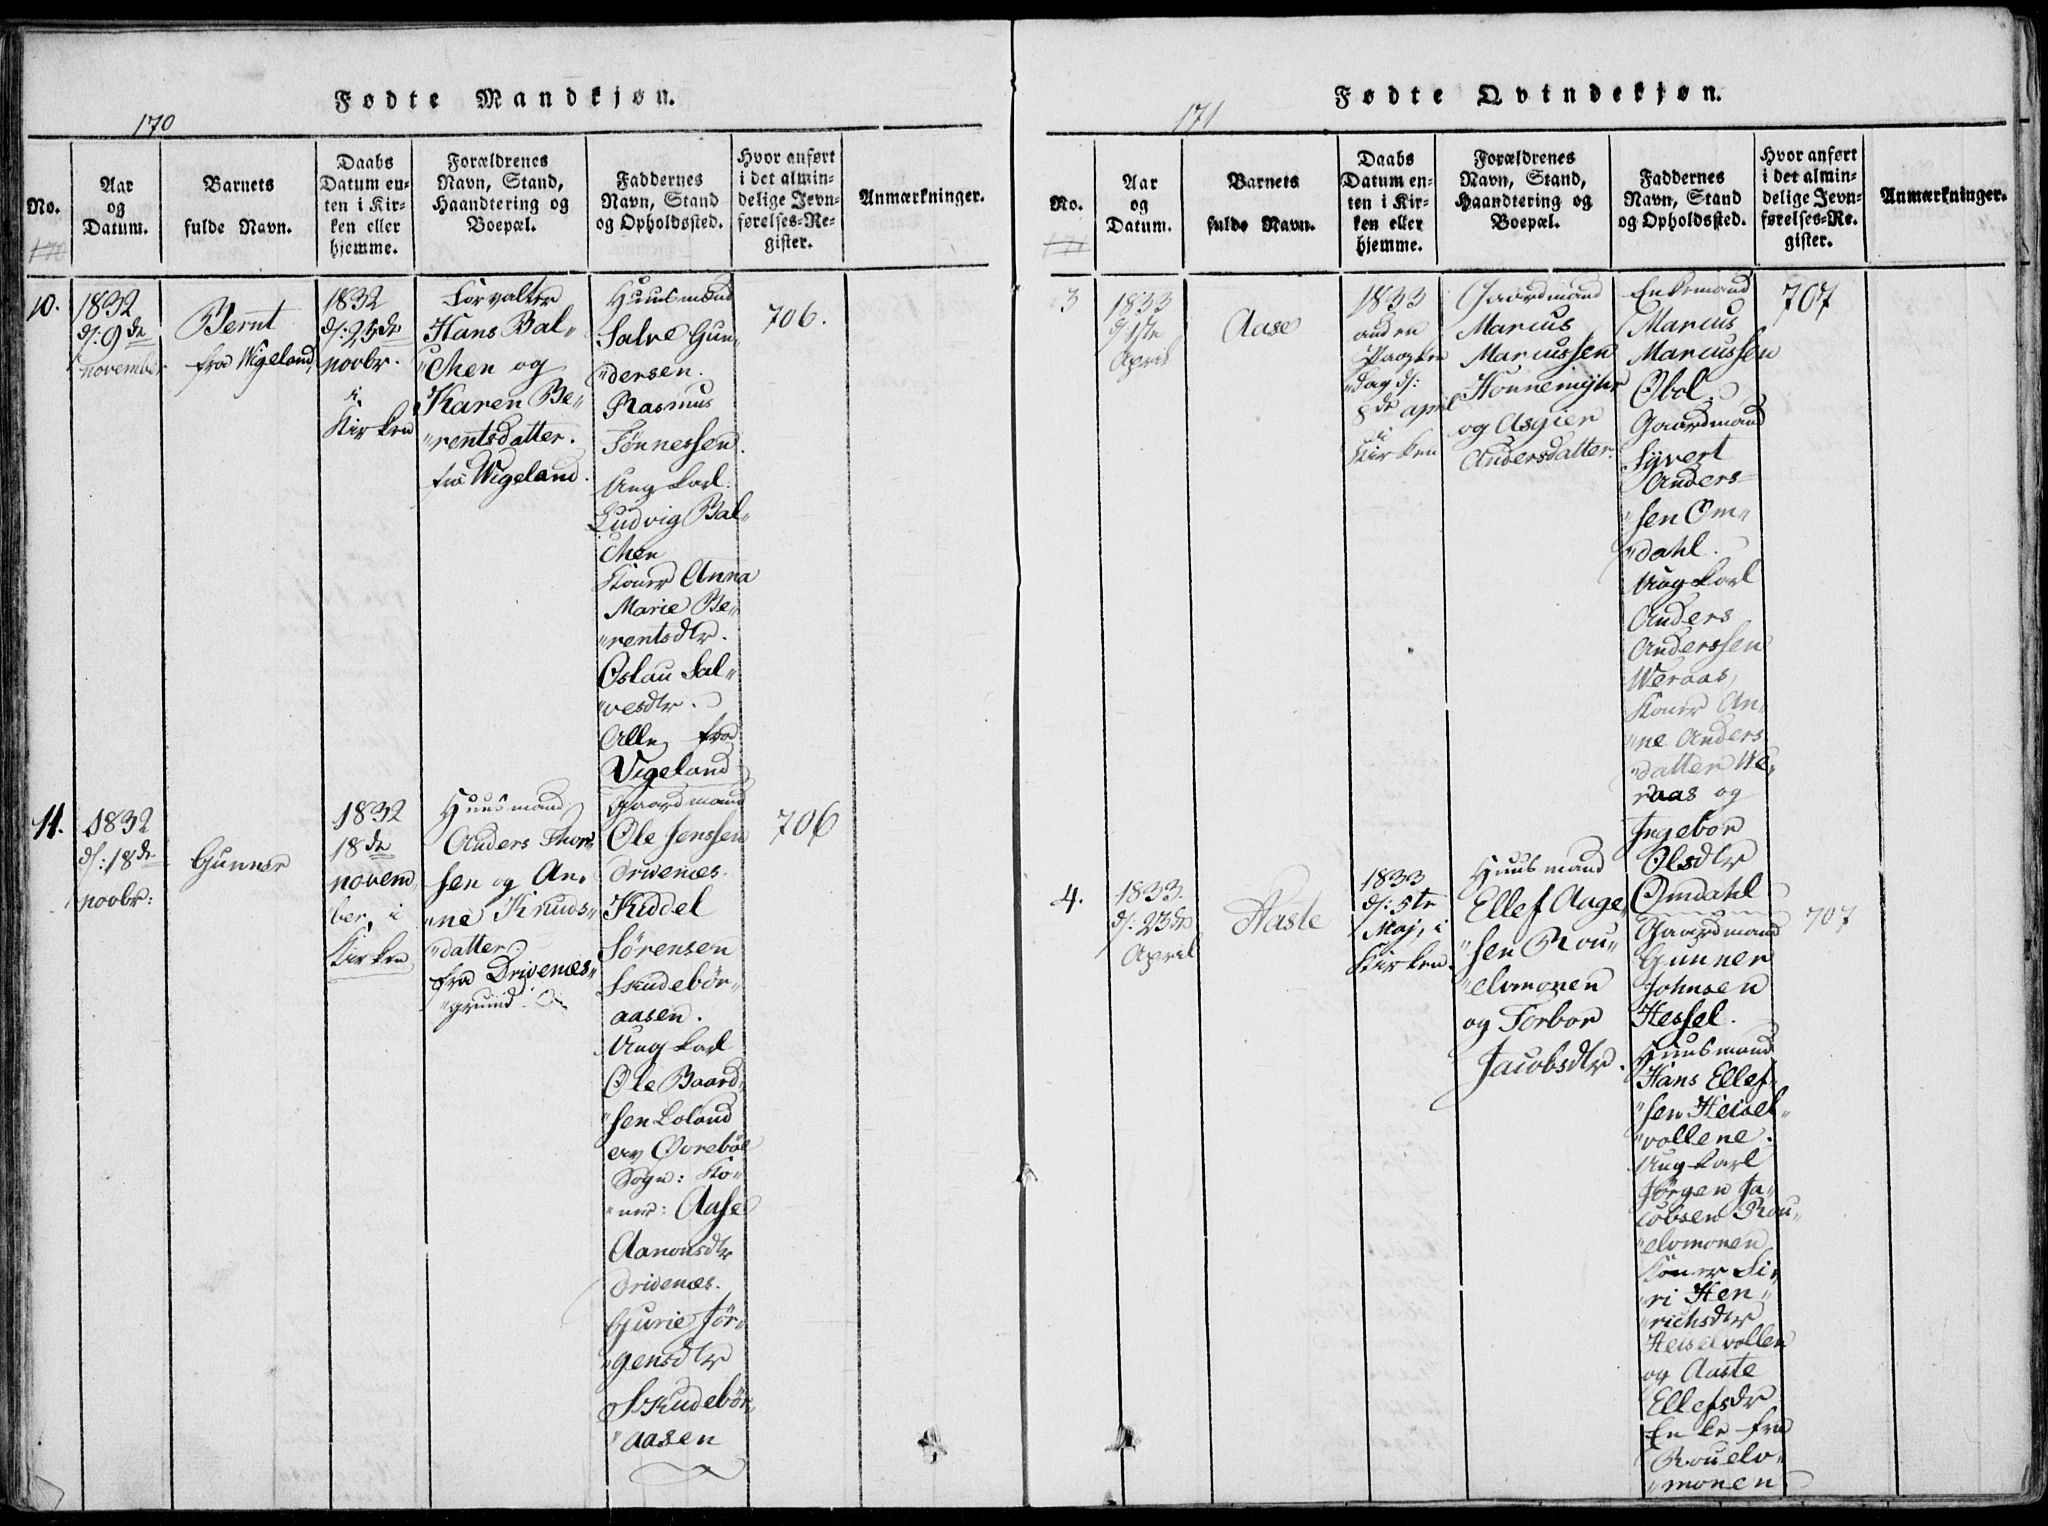 Fødte Mandkjøn.
170
No.
170
Aar
og
Datum.
Barnets
fulde Navn.
Daabs
Datum en-
ten i Kir-
ken eller
hjemme.
Forældrenes
Navn, Stand,
Haandtering og
Boepæl.
Faddernes
Navn, Stand
og Opholdssted.
Hvor anført
i det almin-
delige Jevn-
førelses-Re-
gister.
Anmærkninger.
10.
1832
d/: 9de
november
Bernt
fra Wigeland
1832
d/: 25de
novbr.
i
Kirken
Forvalter
Hans Bal„
„chen og
Karen Be„
„rentsdatter.
fra Wigeland.
Huusmand
Salve Gun„
„dersen.
Rasmus
Tönnessen.
Ung karl.
Ludvig Bal„
chen
Koner Anna
Marie Be„
„rentsdtr.
Oslau Sal„
„vesdtr.
Alle fra
Vigeland
706.
11.
1832
d/: 18de
novbr:
Gunner
1832
18de
novem
ber, i
Kirken
Huusmand
Anders Thor
sen og An„
„ne Knuds„
„datter.
fra Drivenæs„
„grund.
Gaardmand
Ole Jenssen
Drivenæs.
Kiddel
Sörensen
Skudebör„
aasen.
Ung karl
Ole Baard„
„sen Loland
av Övreböe
Sogn: Ko„
„ner: Aase
Aanonsdtr
Drivenæs.
Gurie Jör„
„gensdtr
Skudebör„
„aasen
706
Fødte Qvindekjøn.
171
No.
171
Aar
og
Datum.
Barnets
fulde Navn.
Daabs
Datum en-
ten i Kir-
ken eller
hjemme.
Forældrenes
Navn, Stand,
Haandtering og
Boepæl.
Faddernes
Navn, Stand
og Opholdssted.
Hvor anført
i det almin-
delige Jevn-
førelses-Re-
gister.
Anmærkninger.
3
1833
d/ 1ste
April
Aase
1833
anden
Paaske
„dag d/:
8de april
i
Kirken
Gaardmand
Marcus
Marcussen
Honnemyhr
og Asgier
Andersdatter.
Enkemand
Marcus
Marcussen
Öbol.
Gaardmand
Syvert
Anders„
„sen Om„
„dahl.
Ung karl
Anders
Anderssen
Weraas,
Koner An„
„ne Anders
„datter We„
raas og
Ingebor
Olsdtr
Omdahl
707
4.
1833.
d/: 23de
April
Aaste
1833
d/: 5te
Maj, i
Kirken.
Huusmand
Ellef Aage„
„sen Rou„
„elvmonen
og Torbor
Jacobsdtr.
Gaardmand
Gunner
Johnsen
Hessel.
Huusmand
Hans Ellef„
„sen Heisel„
„vollene.
Ung karl
Jörgen Ja„
cobsen Rou„
„elvmonen
Koner Si„
„ri Hen„
„richsdtr
Heiselvollen
og Aaste
Ellefsdr
Enke fra
Rouelv„
„monen.
707